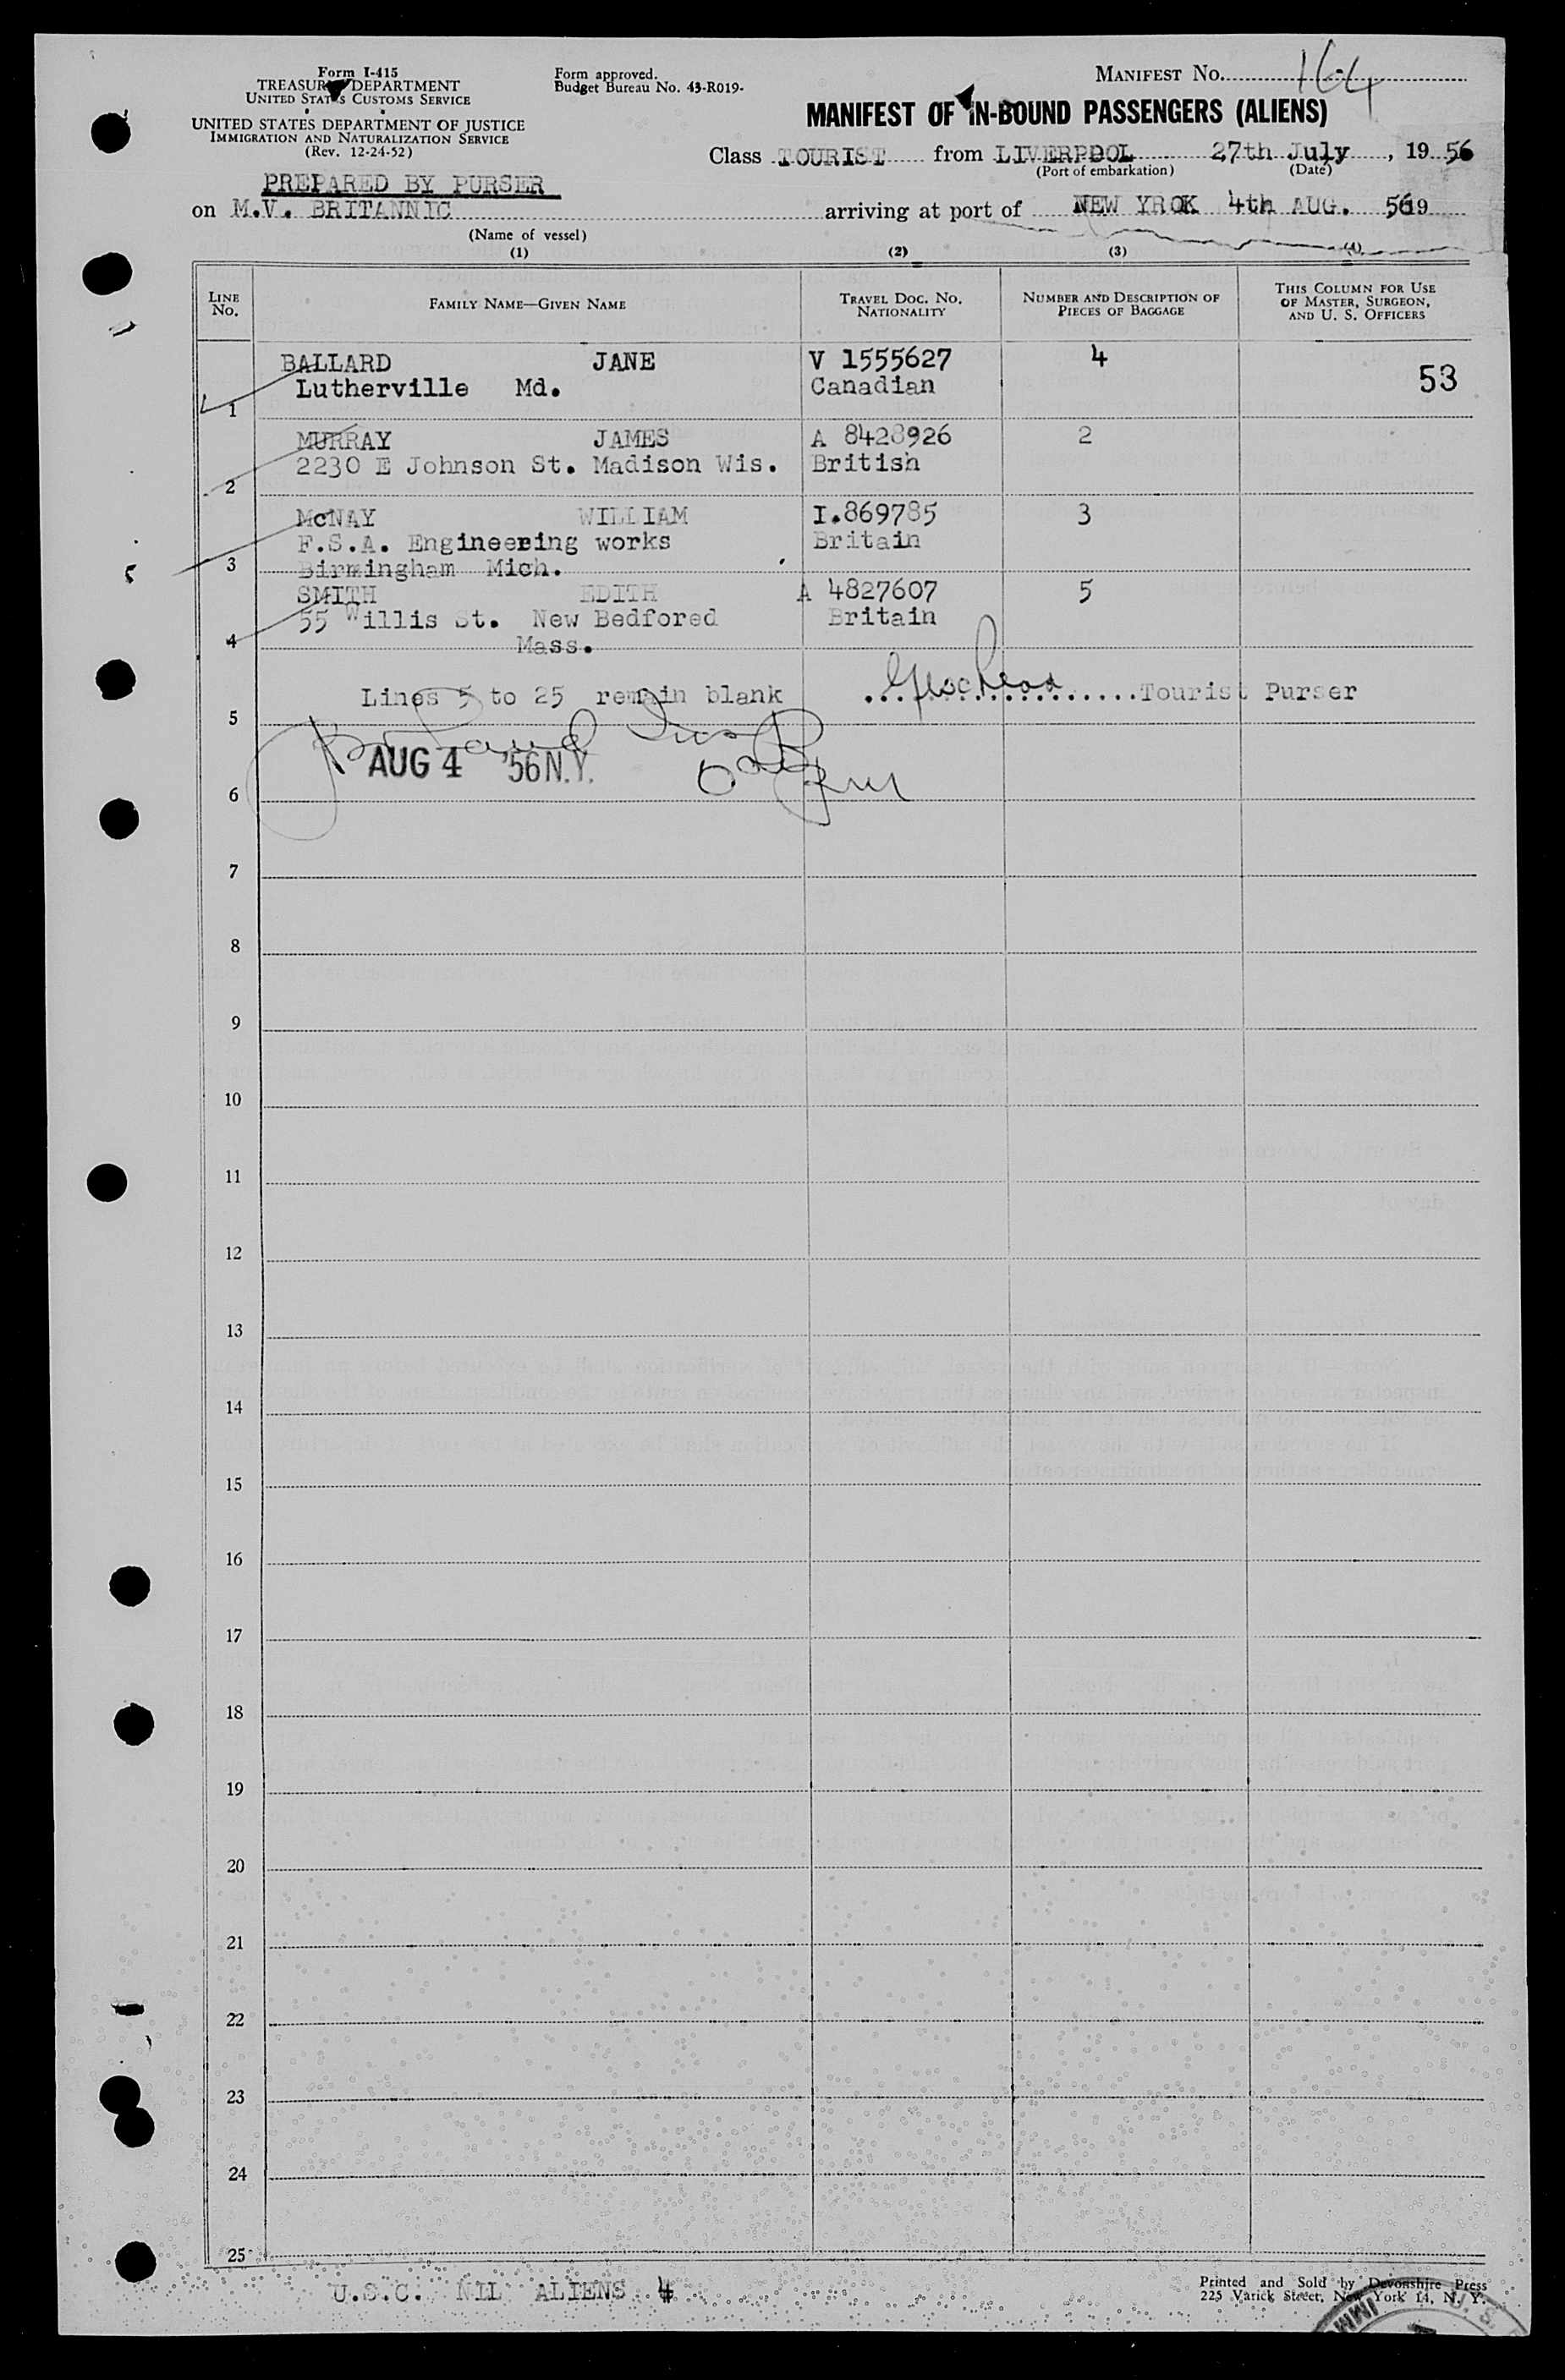 Form I-415
TREASURY DEPARTMENT
UNITED STATES CUSTOMS SERVICE
UNITED STATES DEPARTMENT OF JUSTICE
IMMIGRATION AND NATURALIZATION SERVICE
(Rev. 12-24-52)
Form approved.
Budget Bureau No. 43-R019-
MANIFEST No. 164
MANIFEST OF IN-BOUND PASSENGERS (ALIENS)
Class TOURIST from LIVERPOOL 27th July, 19 56
(Port of embarkation) (Date)
PREPARED BY PURSER
on M.V. BRITANNIC arriving at port of NEW YROK 4th AUG. 5619
(Name of vessel)
(1) (2) (3) (4)
LINE No. FAMILY NAME—GIVEN NAME TRAVEL DOC. NO. NATIONALITY NUMBER AND DESCRIPTION OF PIECES OF BAGGAGE THIS COLUMN FOR USE OF MASTER, SURGEON, AND U. S. OFFICERS
BALLARD JANE V 1555627 4
Lutherville Md. Canadian 53
1
MURRAY JAMES A 8428926 2
2230 E Johnson St. Madison Wis. British
2
McNAY WILLIAM I.869785 3
F.S.A. Engineering works Britain
3 Birmingham Mich.
SMITH EDITH A 4827607 5
55 Willis St. New Bedfored Britain
4 Mass.
Lines 5 to 25 remain blank Tourist Purser
5
AUG 4 '56 N.Y.
6
7
8
9
10
11
12
13
14
15
16
17
18
19
20
21
22
23
24
25
U.S.C. NIL ALIENS 4
Printed and Sold by Devonshire Press
225 Varick Street, New York 14, N. Y.